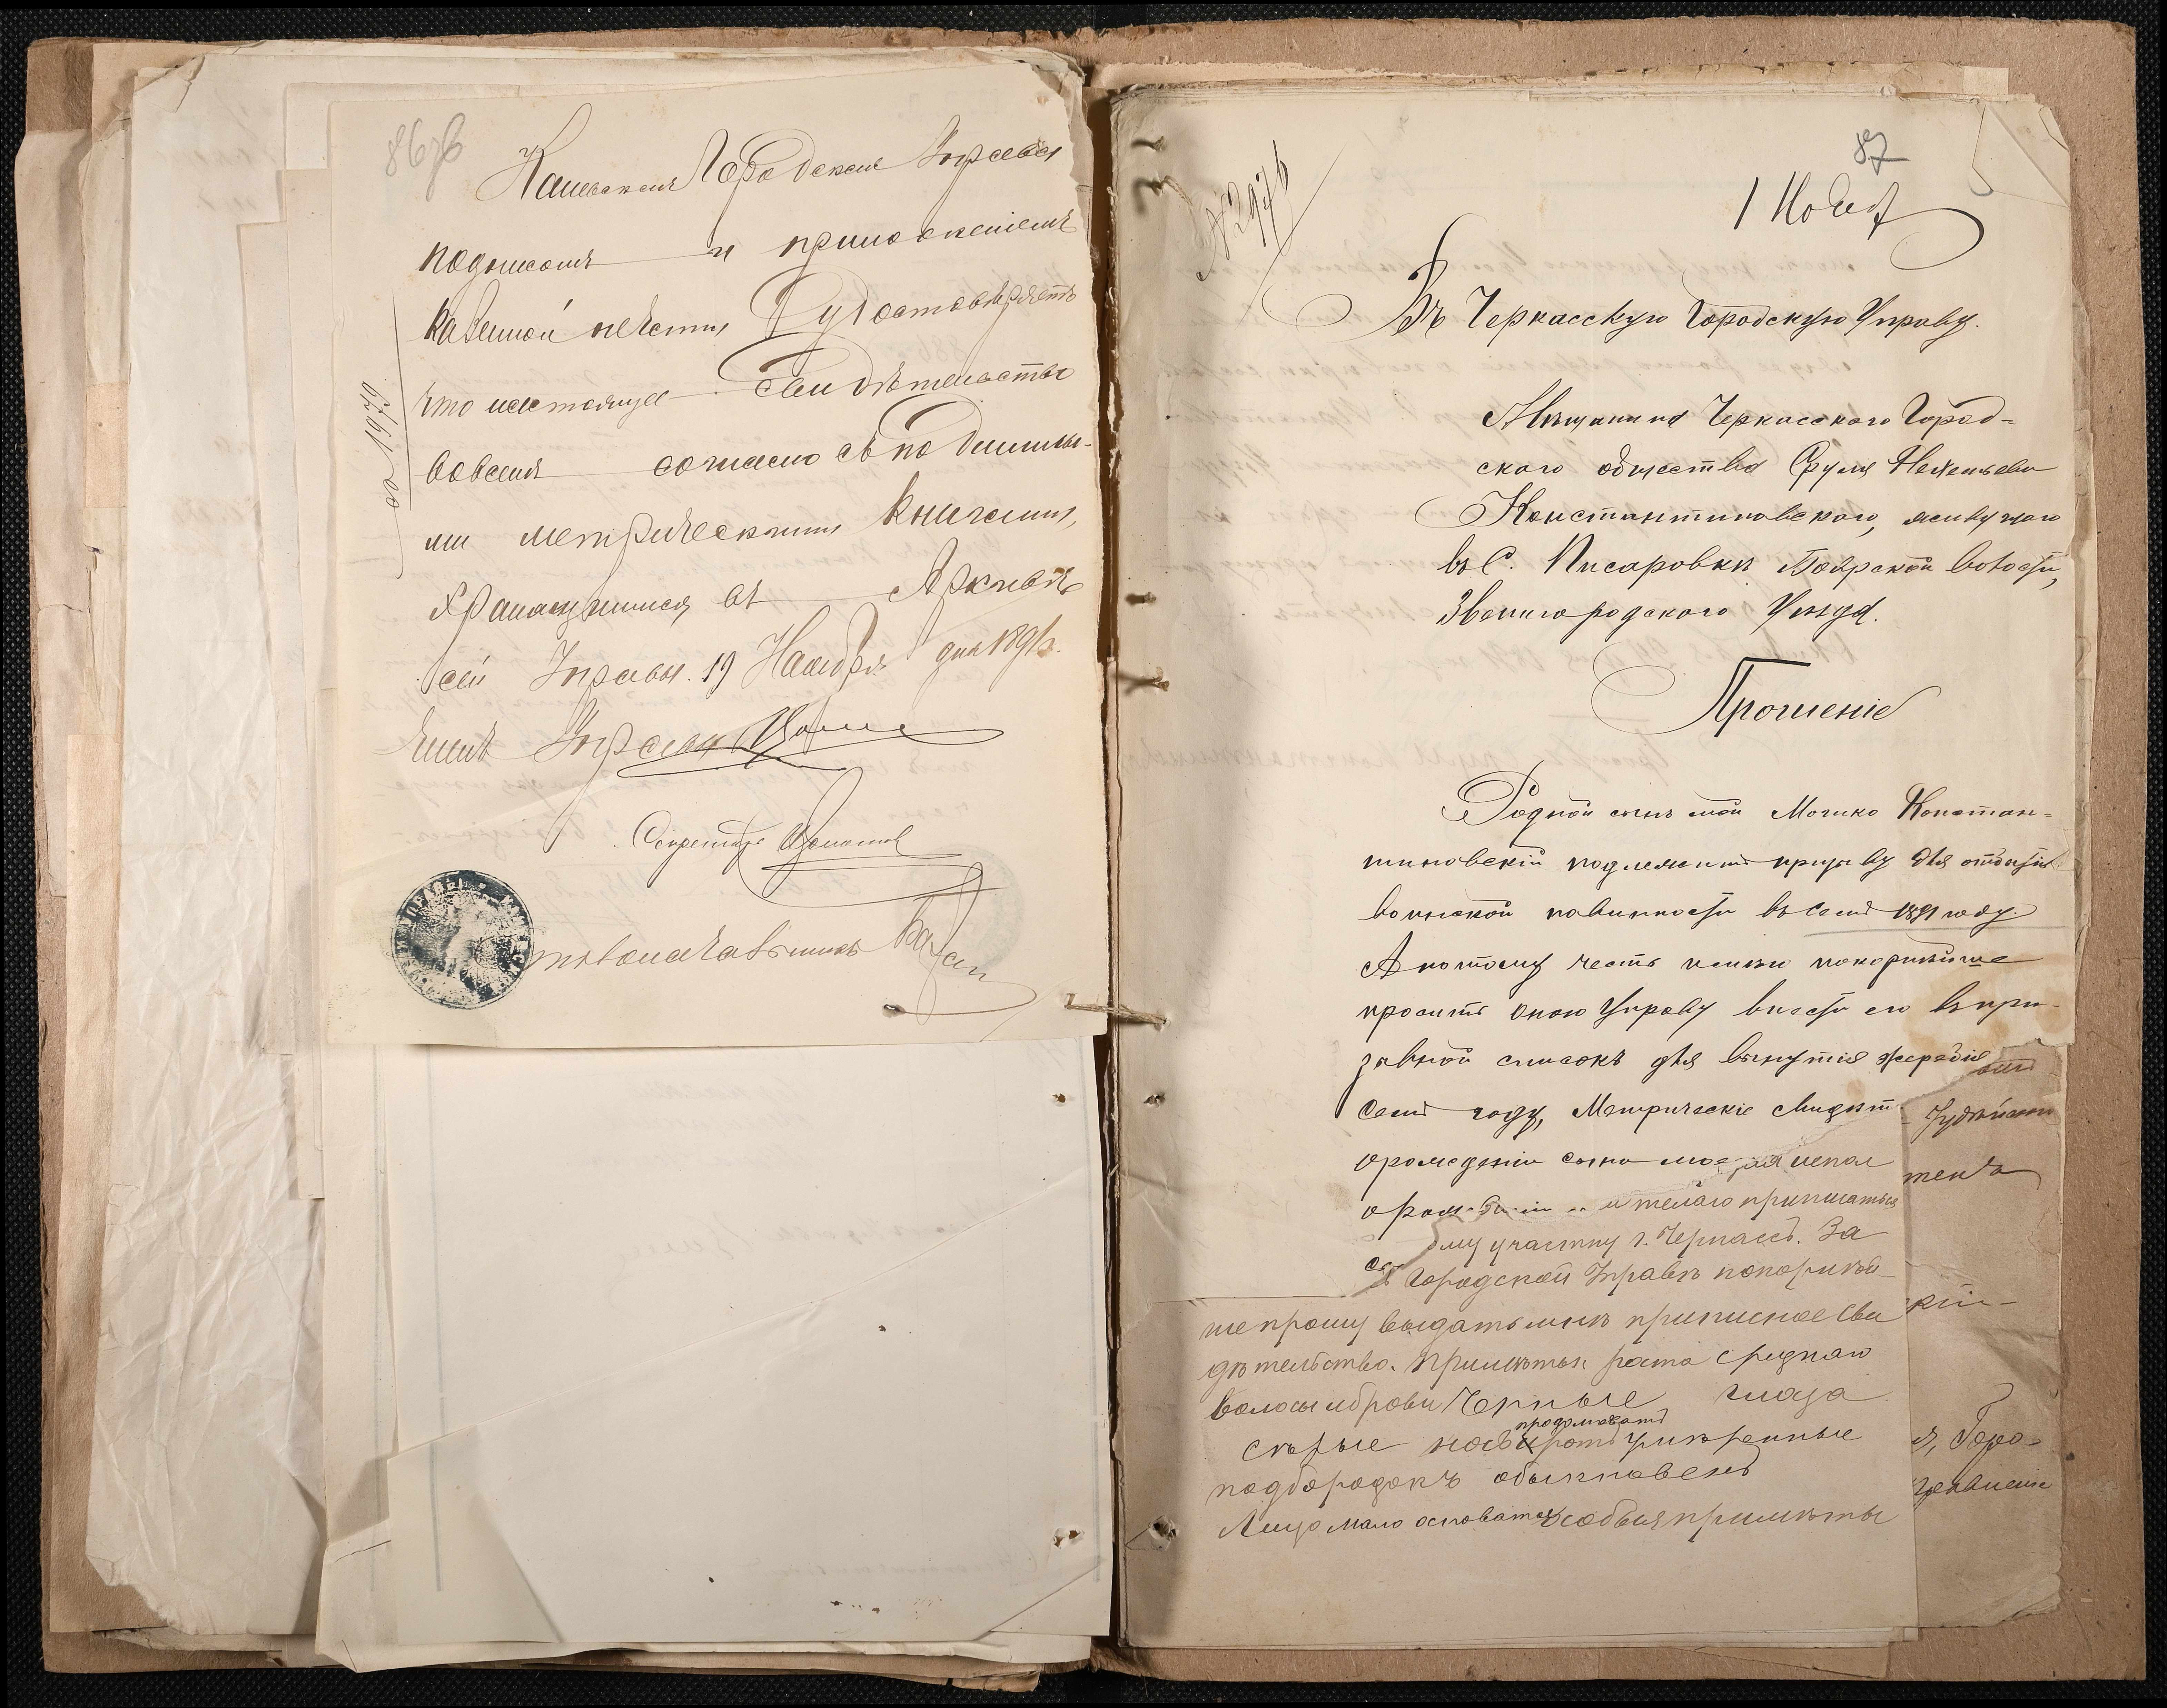 86об
Каневская Городская Управа
подписомъ и приложеніемъ
казенной печати Удостовѣряетъ
что настоящее Свидѣтельство
вовсемъ согласно съ подлинны-
ми метрическими книгами,
хранящимися въ Архивѣ
сей Управы. 19 Ноября дня 1891г.
Членъ Управы
Секретарь
87
№2976
1 Нояб
Въ Черкасскую Городскую Управу.
Мѣщанина Черкасскаго Город-
ского общества Сруля
Константиновского, живущаго
въ С. Писаровкѣ Боярской волости,
Звенигородского Уѣзда.
Прошеніе
Родной сынъ мой Мошко Констан-
тиновскій подлежитъ призыву для отбытія
воинской повинности въ семъ 1891 году.
А потому честь имѣю покорнѣйше
просить оную Управу внести его въ при-
зывной списокъ для вынутія жеребія
семъ году, Метрическіе свидѣт
орождении сына мое
и желаю приписаться
ому участку г. Черкассъ. За
Городской Управѣ покорнѣй-
ше прошу выдать мнѣ приписное Сви
дѣтельство. Примѣты роста средняго
волосы и брови Черные глаза
продолжоватъ
сѣрые носъ ротъ умѣренные
подбородокъ обыкновенъ
Лицо мало особыя примѣты
тента
кій-
я, Горо-